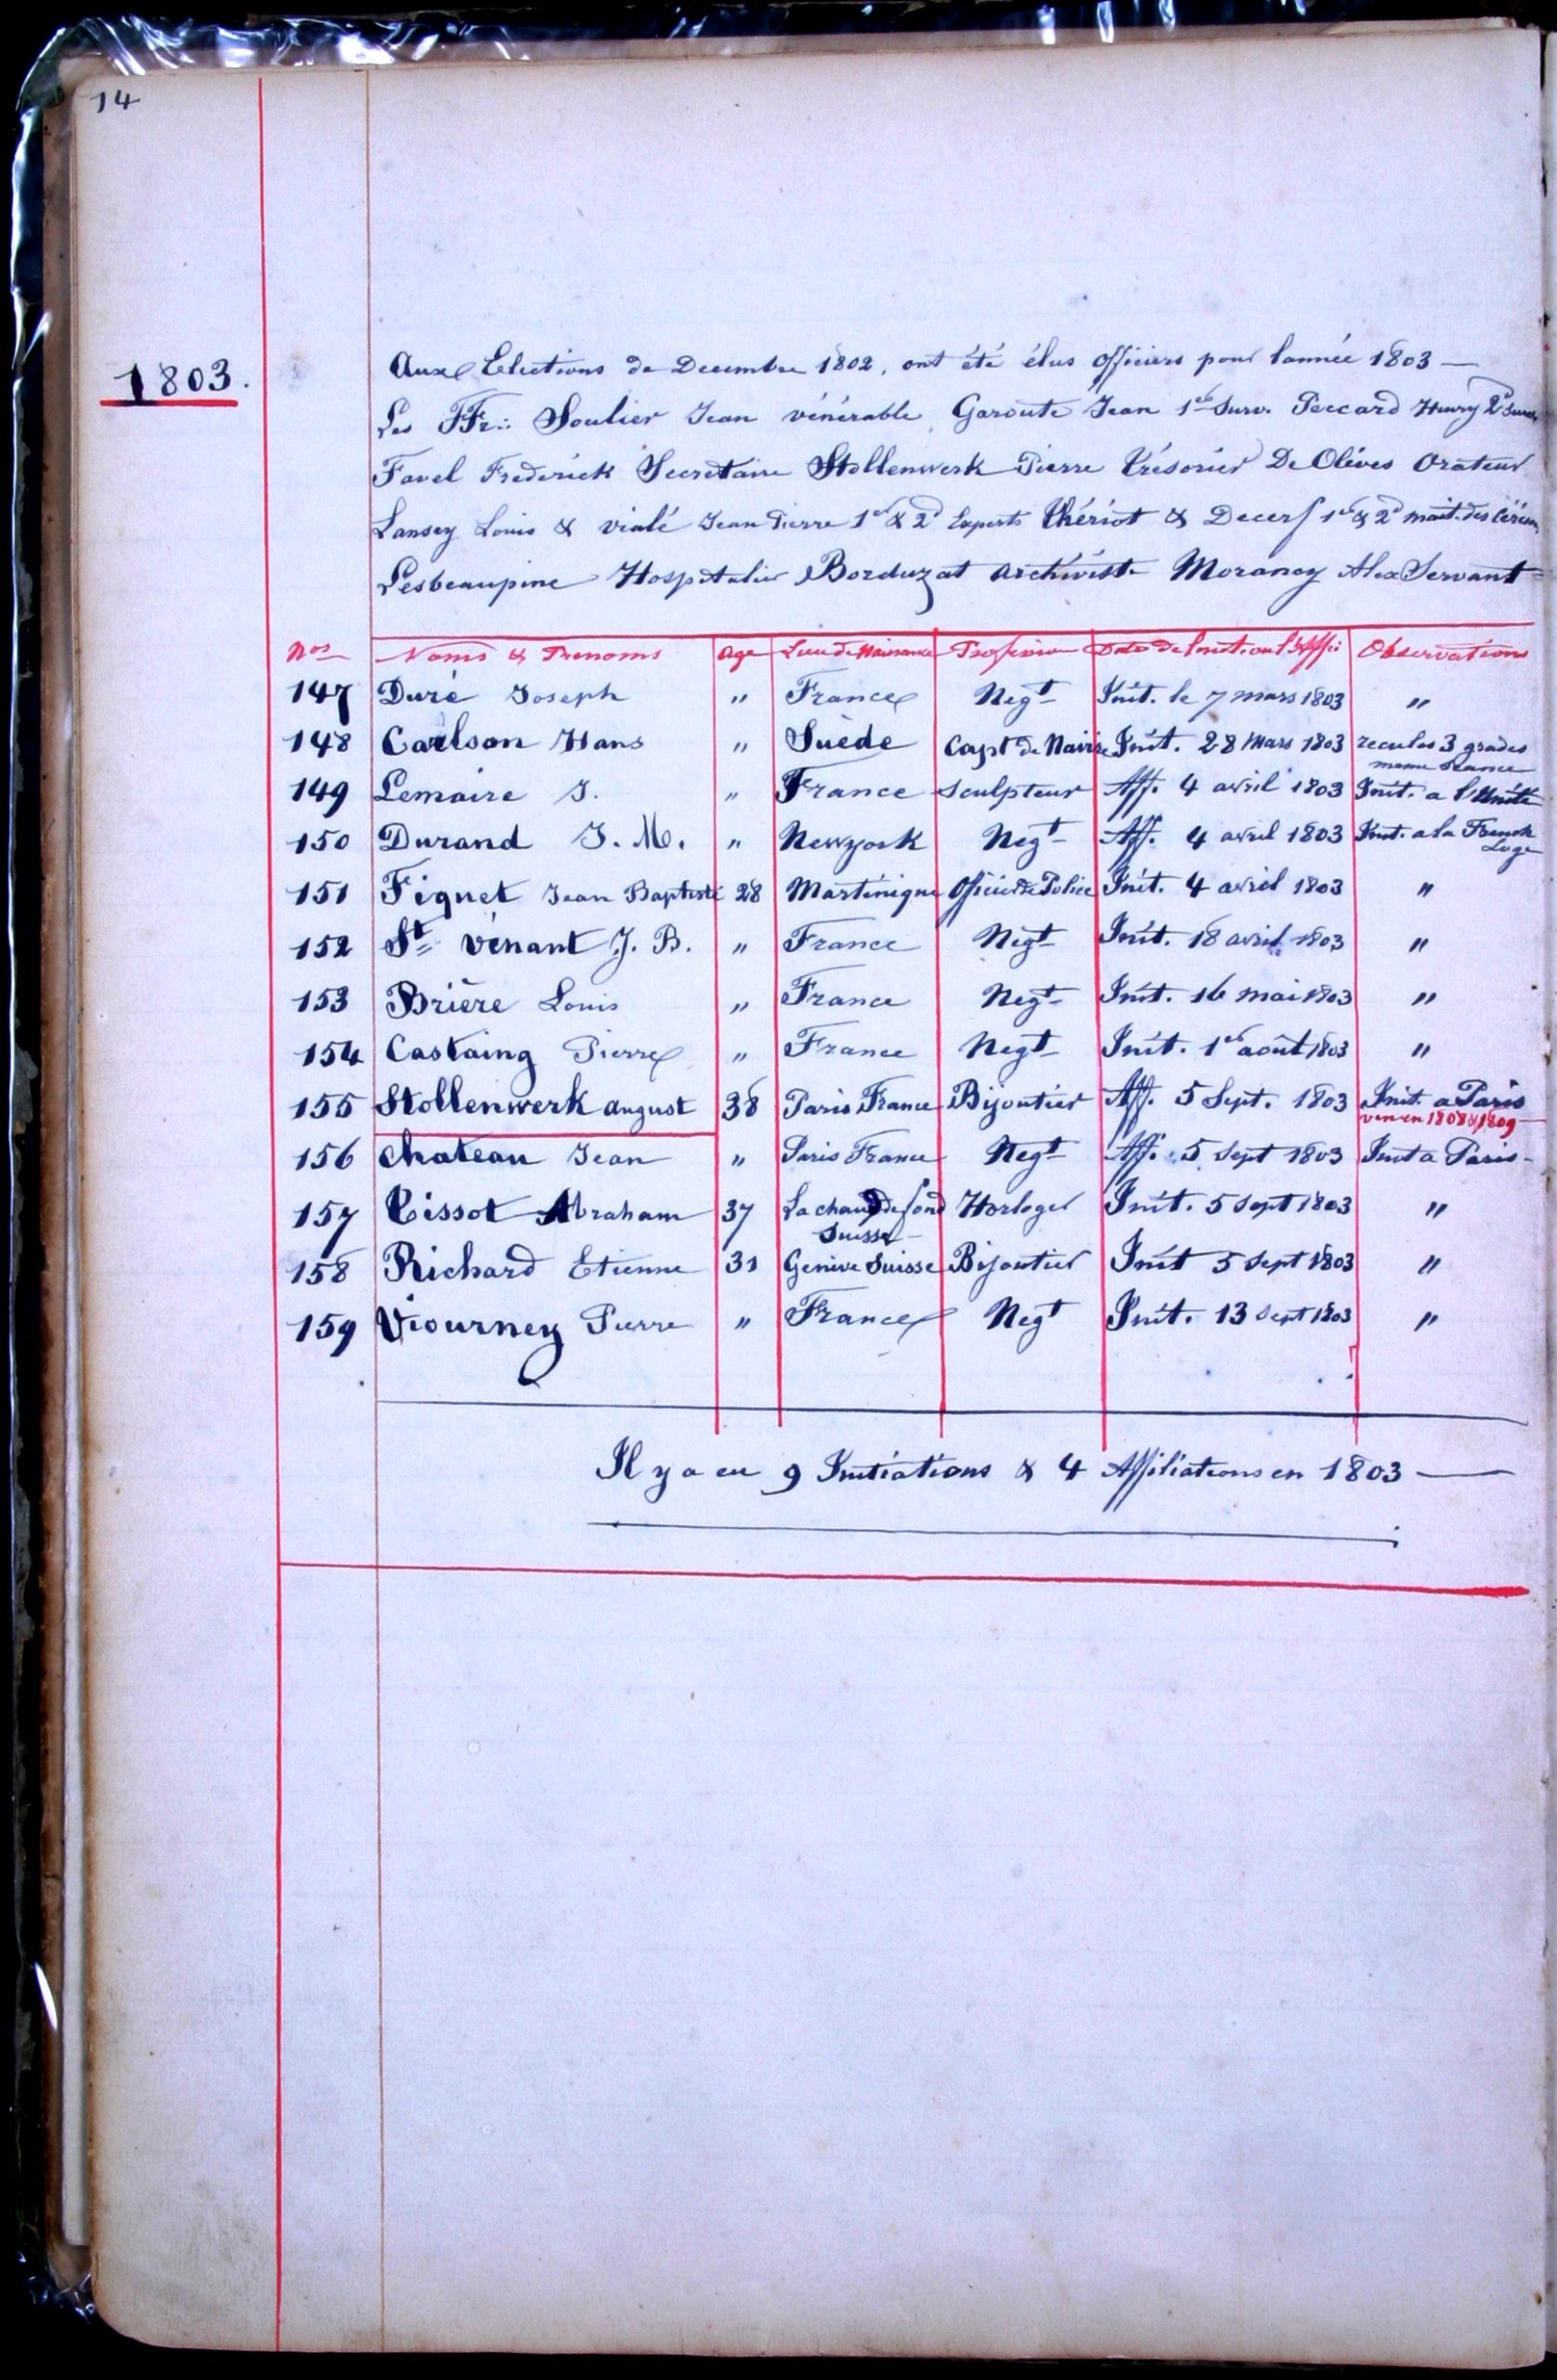 14
1803.
Aux Elections de Decembre 1802, ont été élus officiers pour lannée 1803 —
Les FFr∴ Soulier Jean vénérable, Garoute Jean 1er Surv. Peccard Henry 2d Surv.
Favel Frederick Secretaire Stollenwerk Pierre Trésorier De Olives Orateur
Lansey Louis & vialé Jean Pierre 1er & 2d Experts Thériot & Decerf 1er & 2d mait. des Cérém
Lesbeaupine Hospitalier Borduzat archiviste Morancy Alex Servant
Nos Noms & Prenoms Age Lieu de Naissance Profession Date de l'Init. ou l'Affi: Observations
147 Duré Joseph " France Negt Init. le 7 mars 1803 "
148 Carlson Hans " Suède Capt de Navire Init. 28 Mars 1803 recu les 3 grades
meme Seance
149 Lemaire J. " France Sculpteur Aff. 4 avril 1803 Init. a l'Unité
150 Durand J. M. " Newyork Negt Aff. 4 avril 1803 Init. a la French
Loge
151 Fiquet Jean Baptiste 28 Martinique Officier de Police Init. 4 avril 1803 "
152 St vénant J. B. " France Negt Init. 18 avril 1803 "
153 Brière Louis " France Negt Init. 16 mai 1803 "
154 Castaing Pierre " France Negt Init. 1er août 1803 "
155 Stollenwerk august 38 Paris France Bijoutier Aff. 5 Sept. 1803 Init. a Paris
ven en 1808 & 1809
156 chateau Jean " Paris France Negt Aff. 5 Sept 1803 Init a Paris -
157 Tissot Abraham 37 La chaud de fond Horloger Init. 5 Sept 1803 "
Suisse
158 Richard Etienne 31 Genive Suisse Bijoutier Init 5 Sept 1803 "
159 Viourney Pierre " France Negt Init. 13 Sept 1803 "
Il y a eu 9 Initiations & 4 Affiliations en 1803 —